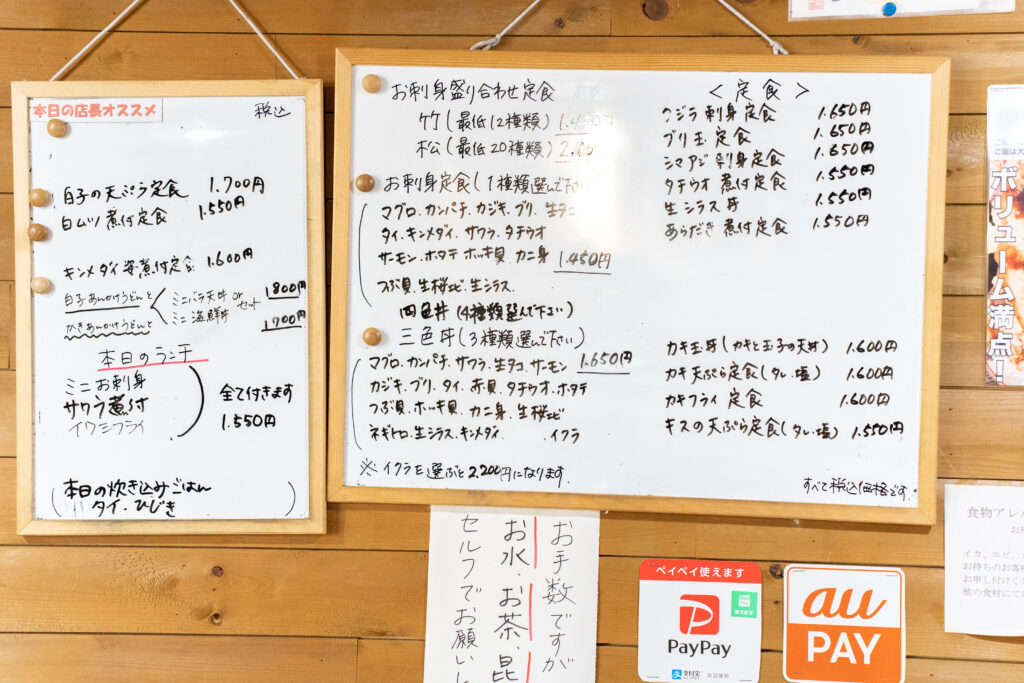 本日の店長オススメ
税込
白子の天ぷら定食 1.700円
白ムツ煮付定食 1.550円
キンメダイ姿煮付定食 1.600円
白子あんかけうどんと
かきあんかけうどんと
ミニバラ天丼 or
ミニ海鮮丼
セット
1800円
1700円
本日のランチ
ミニお刺身
サワラ煮付
イワシフライ
全て付きます
1.550円
(本日の炊き込みごはん
タイ.ひじき)
お刺身盛り合わせ定食
竹(最低12種類)
松(最低20種類)
お刺身定食(1種類選んで下さい)
マグロ.カンパチ.カジキ.ブリ.生タコ
タイ.キンメダイ.サワラ.タチウオ
サーモン.ホタテ ホッキ貝.カニ身 1.450円
つぶ貝.生桜エビ.生シラス.
四色丼(4種類選んで下さい)
三色丼(3種類選んで下さい)
マグロ.カンパチ.サワラ.生タコ.サーモン 1.650円
カジキ.ブリ.タイ.赤貝.タチウオ.ホタテ
つぶ貝.ホッキ貝.カニ身.生桜エビ
ネギトロ.生シラス.キンメダイ. .イクラ
※イクラを選ぶと2.200円になります.
<定食>
クジラ刺身定食 1.650円
ブリ玉定食 1.650円
シマアジ刺身定食 1.650円
タチウオ煮付定食 1.550円
生シラス丼 1.550円
あらだき煮付定食 1.550円
カキ玉丼(カキと玉子の天丼) 1.600円
カキ天ぷら定食(タレ.塩) 1.600円
カキフライ定食 1.600円
キスの天ぷら定食(タレ.塩) 1.550円
すべて税込価格です.
ボリューム満点!
お手数ですが
お水、お茶、昆
セルフでお願いし
ペイペイ使えます
LINE Pay
使えます
PayPay
支付宝
欢迎使用
au
PAY
食物アレ
イカ、エビ、
お待ちのお客
お申し付けく
他の食材にて